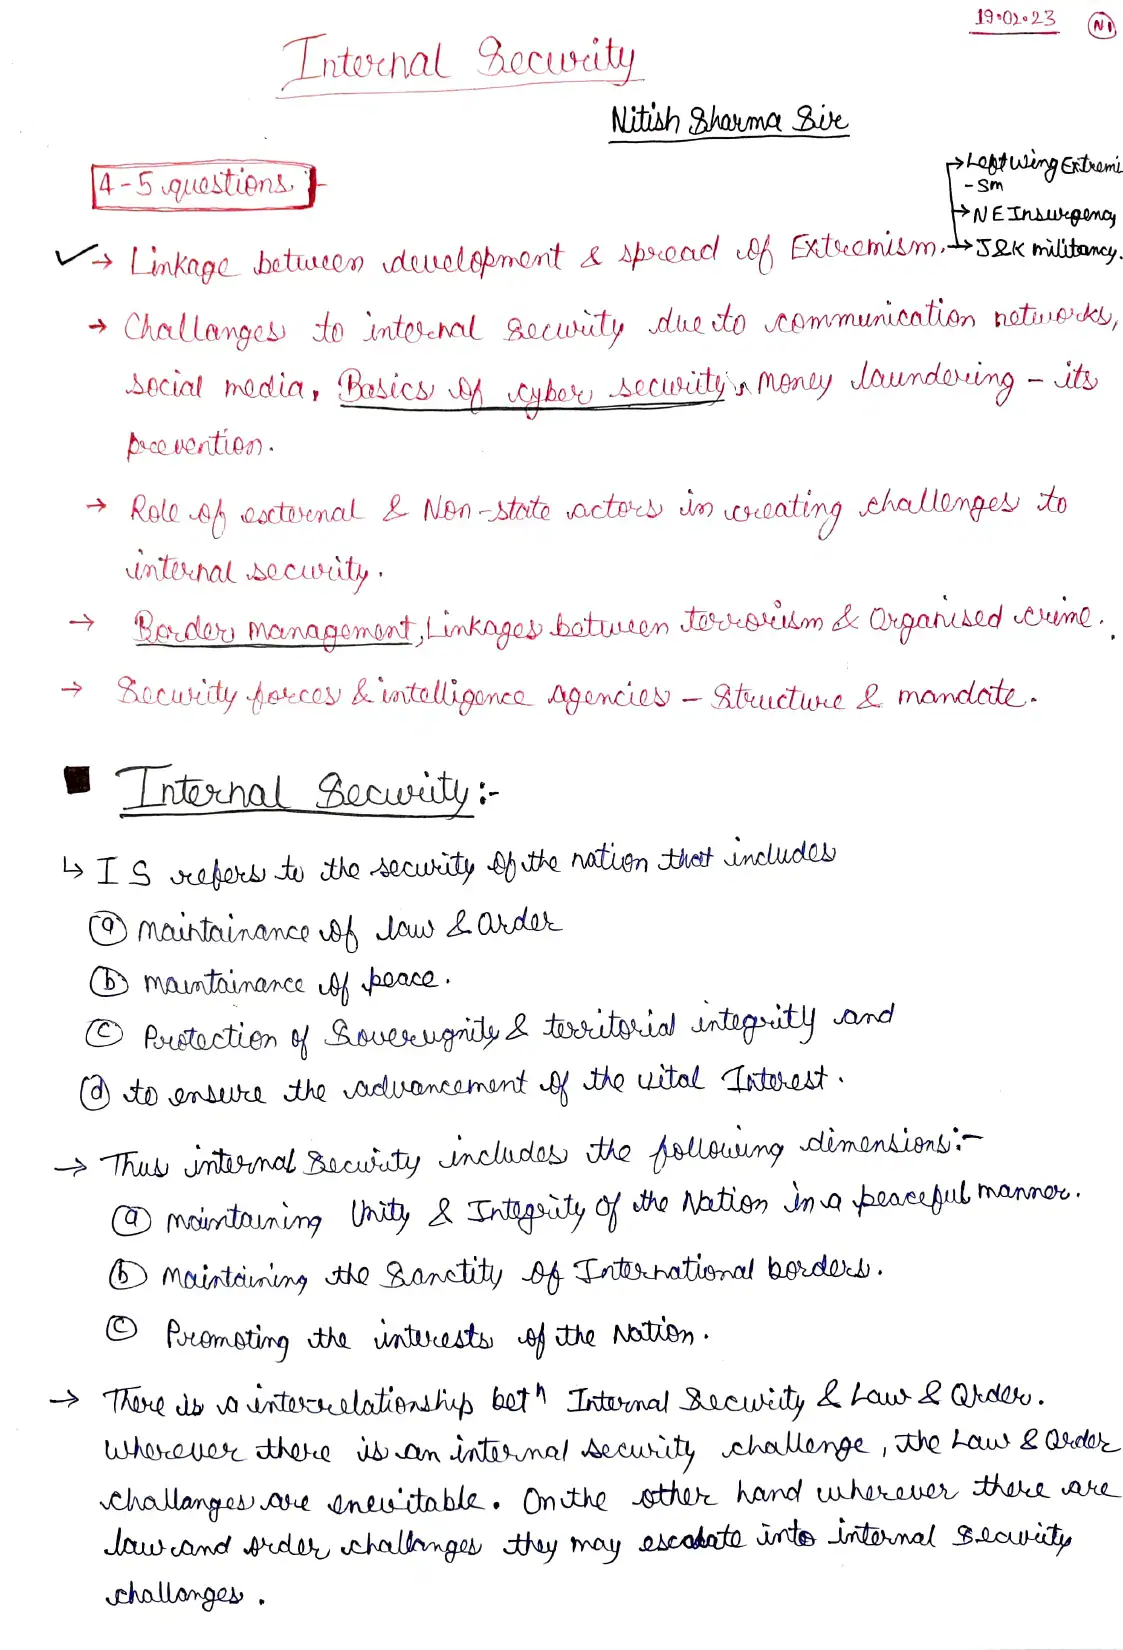 19.02.23 N1
Internal Security
Nitish Sharma Sir
4-5 questions :-
→ Left wing Extremi
-sm
→ NE Insurgency
✓→ Linkage between development & spread of Extremism. → J&K militancy.
→ Challanges to internal security due to communication networks,
social media, Basics of cyber security, Money laundering - its
prevention.
→ Role of external & Non-state actors in creating challenges to
internal security.
→ Border management, Linkages between terrorism & Organised crime.
→ Security forces & intelligence agencies - Structure & mandate.
■ Internal Security :-
↳ I S refers to the security of the nation that includes
ⓐ maintainance of law & order
ⓑ maintainance of peace.
ⓒ Protection of Soverugnity & territorial integrity and
ⓓ to ensure the advancement of the vital Interest.
→ Thus internal Security includes the following dimensions :-
ⓐ maintaining Unity & Integrity of the Nation in a peaceful manner.
ⓑ Maintaining the Sanctity of International borders.
ⓒ Promoting the interests of the Nation.
→ There is a interrelationship betn Internal Security & Law & Order.
Wherever there is an internal security challenge, the Law & Order
challanges are inevitable. On the other hand wherever there are
law and order challanges they may escalate into internal Security
challanges.